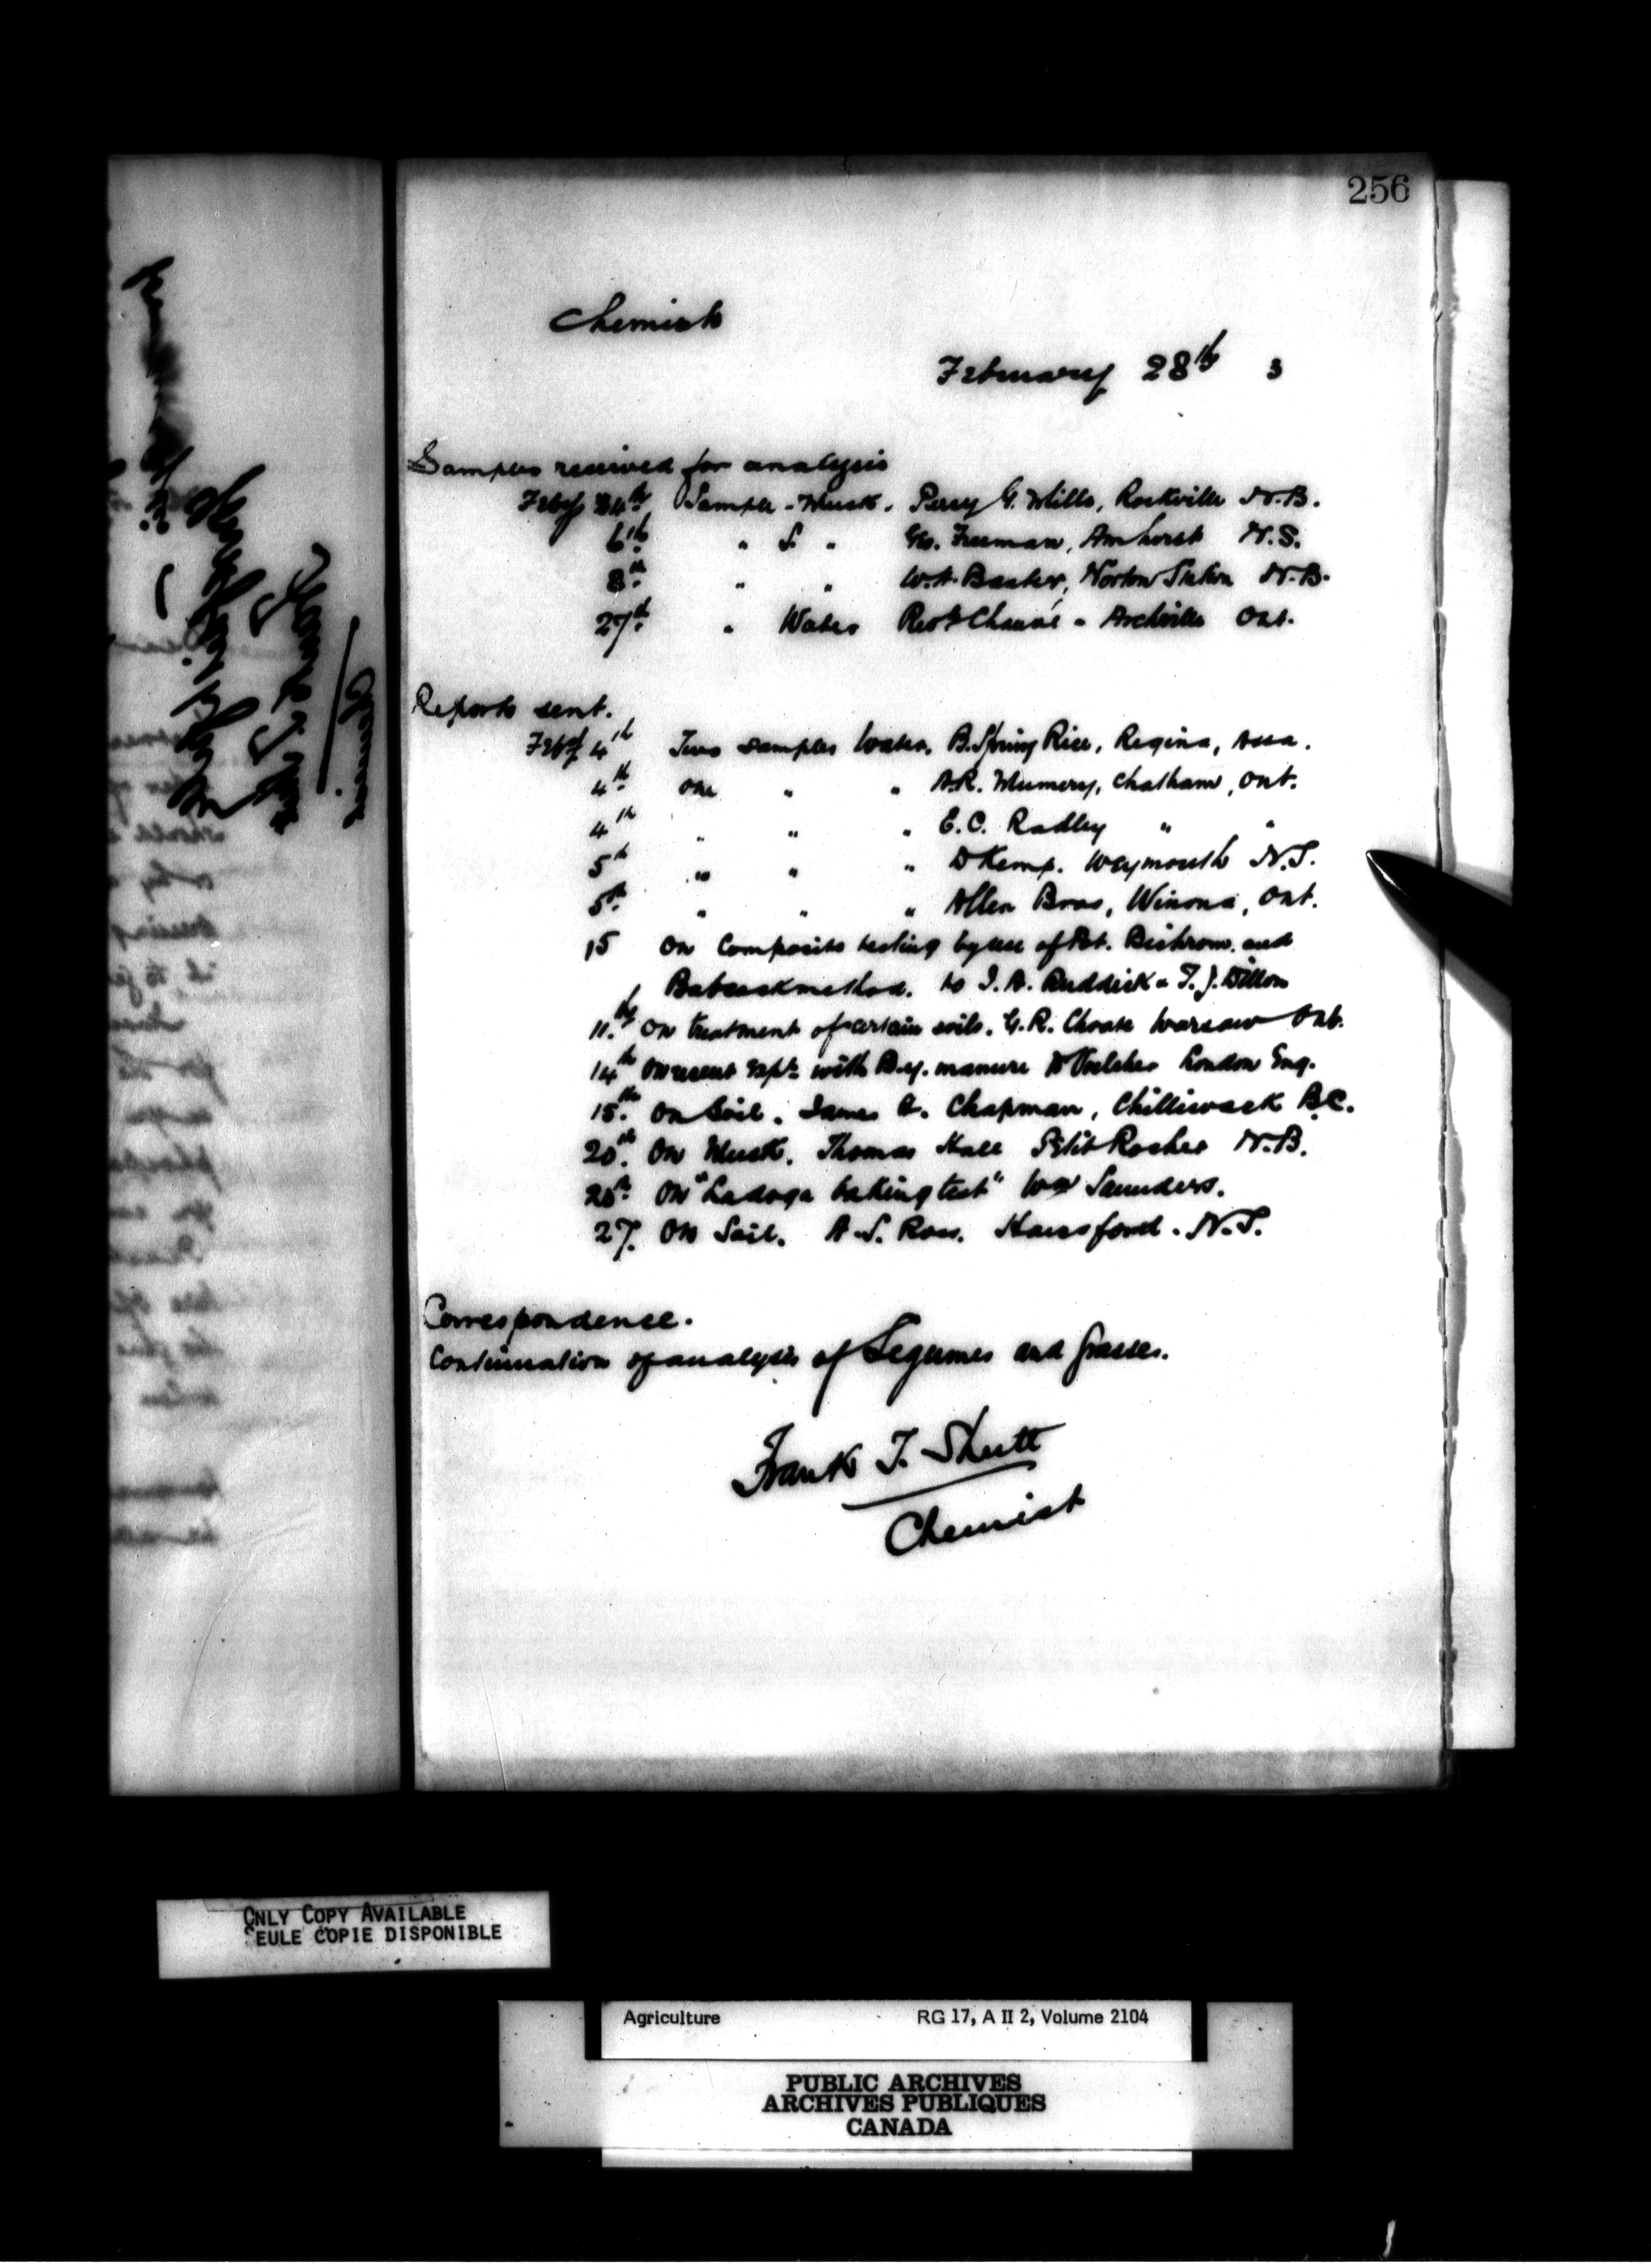 256
Chemists
February 28th 3
Samples received for analysis
Feby 4th Sample - Muck. Percy G. Mills, Rockville N.B.
6th " S. " Geo. Freeman, Amherst N.S.
8th " " W.A. Baxter, Norton Station N.B.
27th " Water Archville Ont.
Reports sent.
Feby 4th Two samples Water. B. Spring Rice, Regina, Assa.
4th One " " A.R. Mumery, Chatham, Ont.
4th " " " E.C. Radley " "
5th " " " D Kemp. Weymouth N.S.
5th " " " Allen Bros, Winona, Ont.
15 On Composite testing by use of Pot. Bichrom. and
Babcock method. to J. A. Ruddick & T. J. Dillon
11th On treatment of certain soils. G.R. Choate Warsaw Ont.
14th On recent Expts with B.y. manure Dr Voelcker London Eng.
15th On Soil. James A. Chapman, Chilliwack B.C.
20th On Muck. Thomas Hall Petit Rocher N.B.
20th On "Ladoga baking test" Wm Saunders.
27. On Soil. A.S. Ross. Hansford. N.S.
Correspondence.
Continuation of analysis of Legumes and grasses.
Frank T. Shutt
Chemist
ONLY COPY AVAILABLE
SEULE COPIE DISPONIBLE
Agriculture RG 17, A II 2, Volume 2104
PUBLIC ARCHIVES
ARCHIVES PUBLIQUES
CANADA